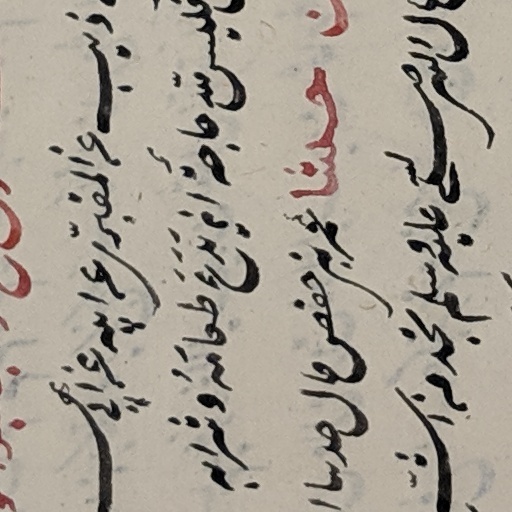 ذيب عن المقبري عن ابيه عن ابي
فليس لله حاجة ان يدع طعامه وشرابه
حدثنا عمر بن حفص قال حدثنا ا
قال النبي صلى عليه وسلم تجد من اشر